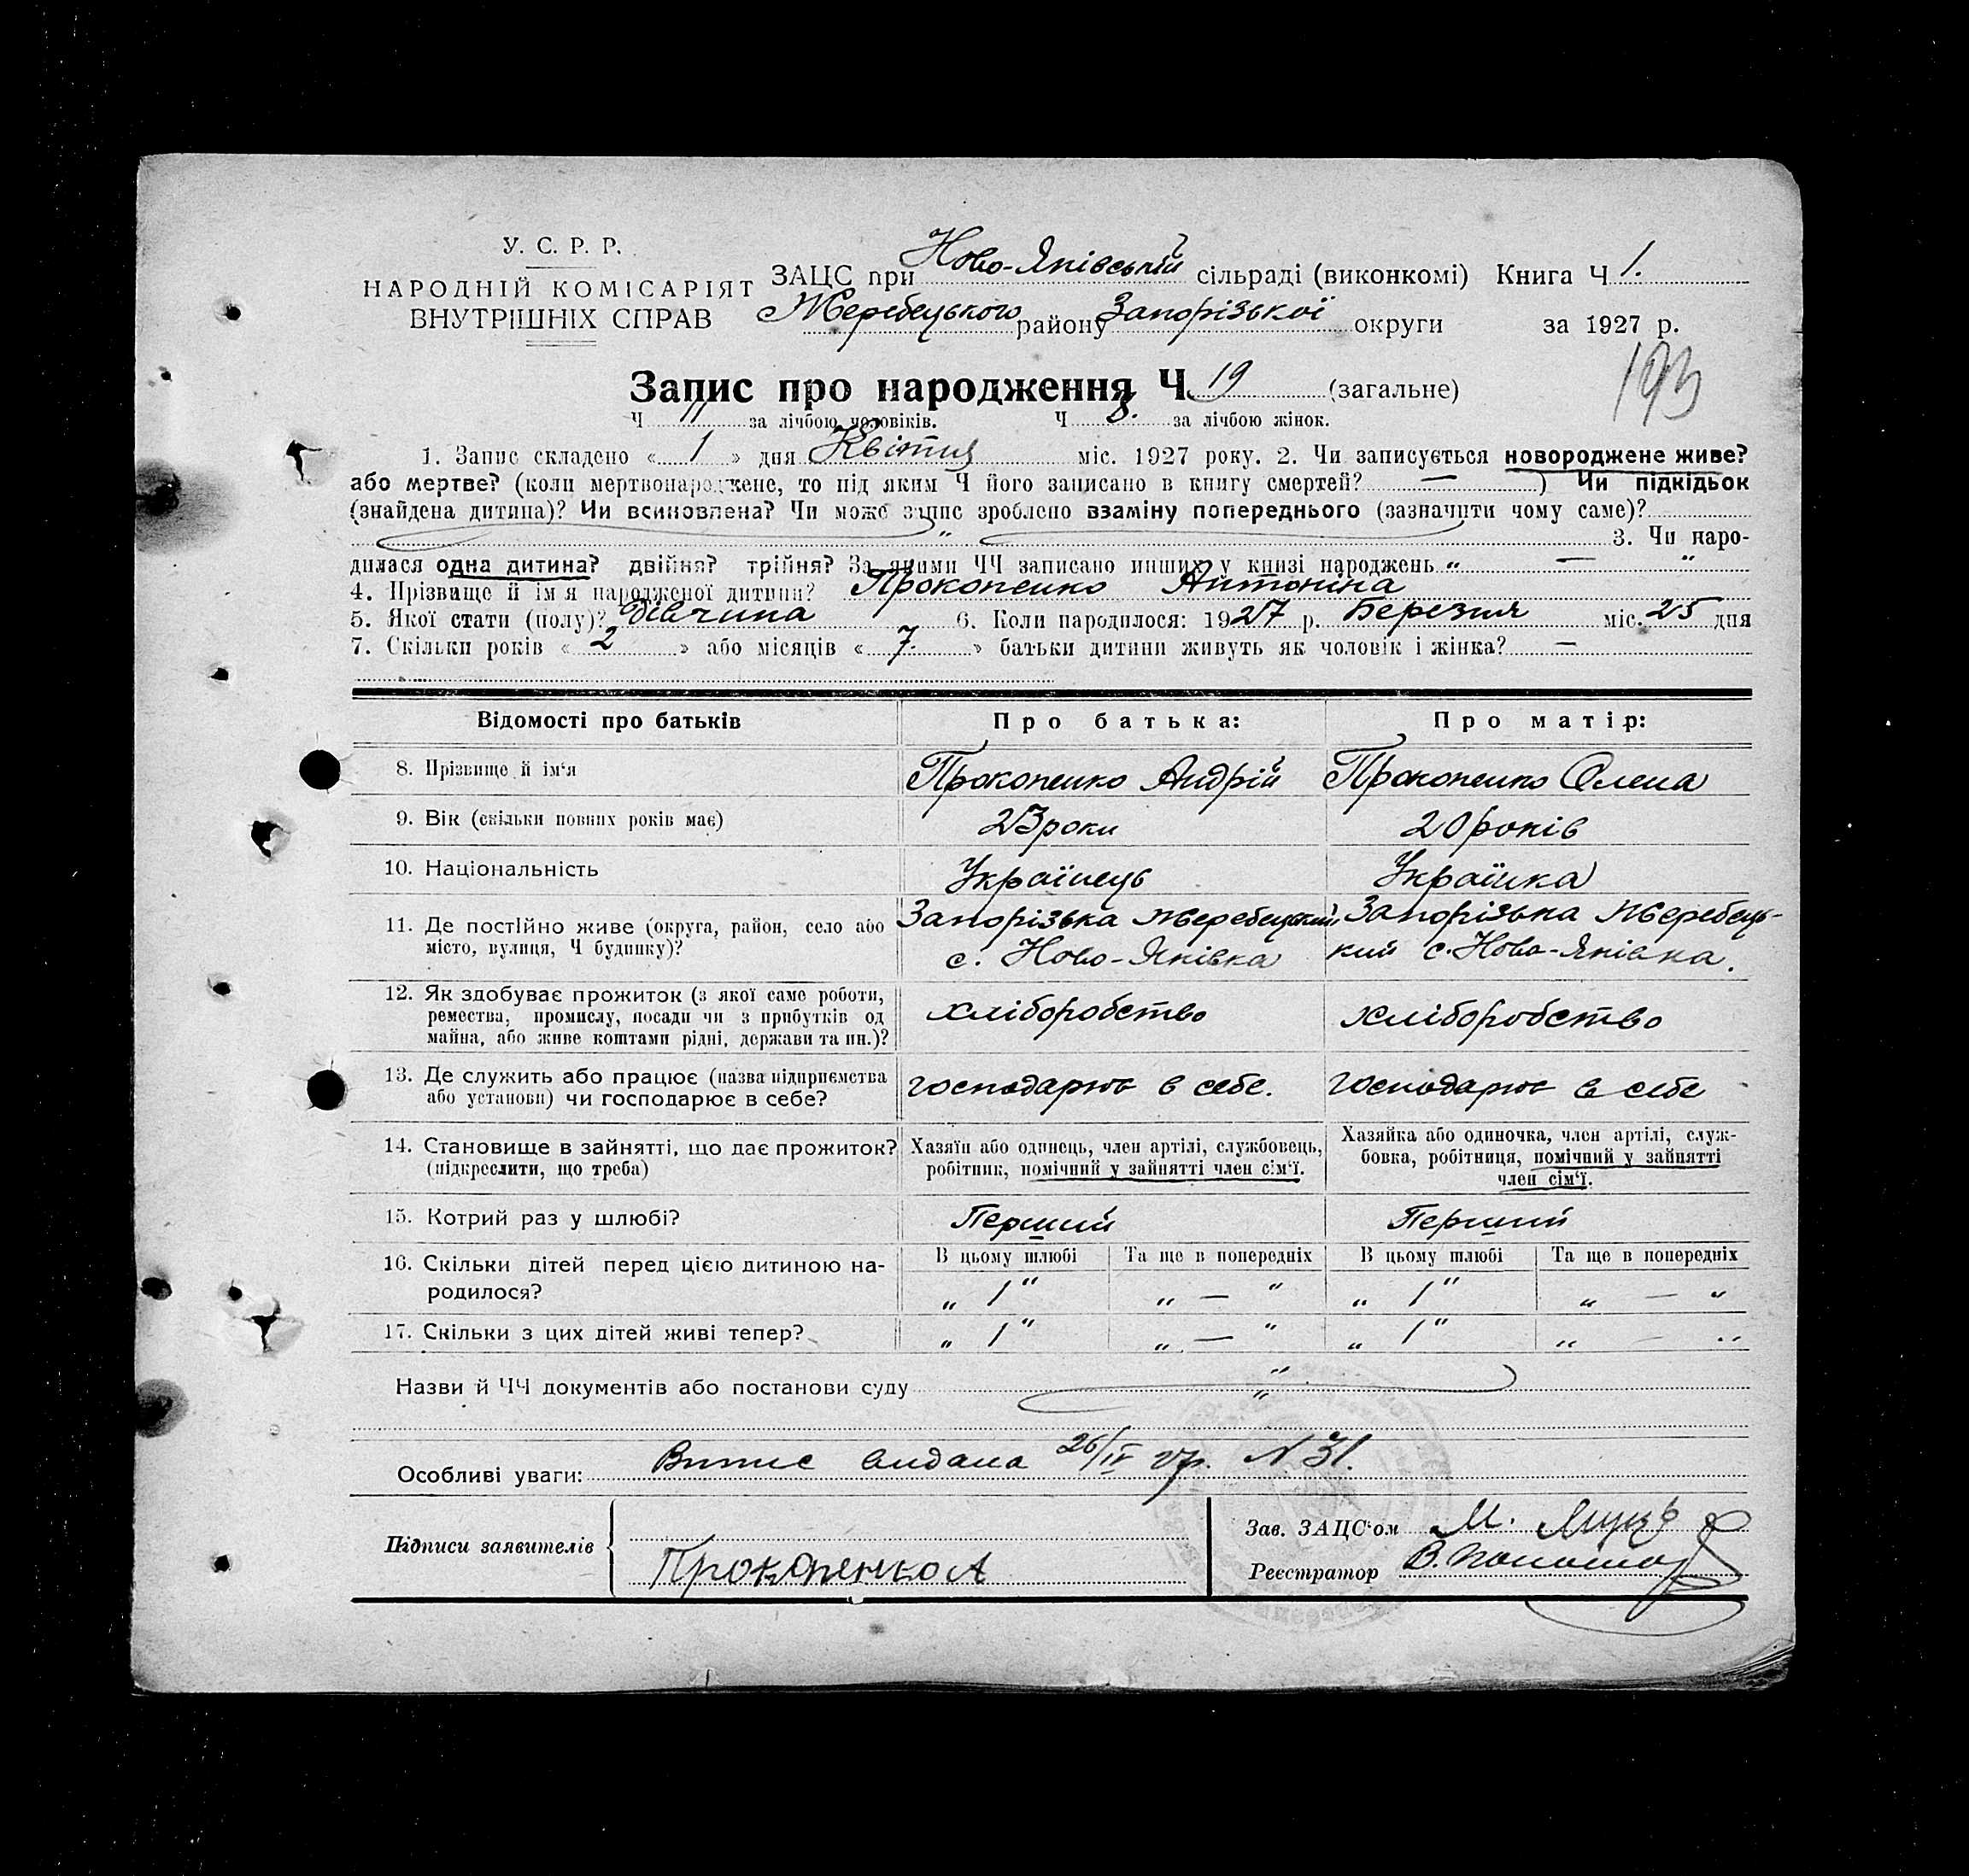 У. С. Р. Р.
НАРОДНІЙ КОМІСАРІЯТ
ВНУТРІШНІХ СПРАВ
ЗАЦС при Ново-Яківській сільраді (виконкомі) Книга Ч 1.
Жеребецького району Запорізької округи за 1927 р.
193
Запис про народження Ч 19 (загальне)
Ч 11 за лічбою чоловіків. Ч 8. за лічбою жінок.
1. Запис складено « 1 » дня Квітня міс. 1927 року. 2. Чи записується новороджене живе?
або мертве? (коли мертвонароджене, то під яким Ч його записано в книгу смертей? — ) Чи підкідьок
(знайдена дитина)? Чи всиновлена? Чи може запис зроблено взаміну попереднього (зазначити чому саме)?
„ 3. Чи наро-
дилася одна дитина? двійня? трійня? За якими ЧЧ записано инших у книзі народжень „ — "
4. Прізвище й ім'я народженої дитини? Прокопенко Антоніна
5. Якої стати (полу)? Дівчина 6. Коли народилося: 1927 р. Березня міс. 25 дня
7. Скільки років « 2 » або місяців « 7. » батьки дитини живуть як чоловік і жінка? —
Відомості про батьків Про батька: Про матір:
8. Прізвище й ім'я Прокопенко Андрій Прокопенко Олена
9. Вік (скільки повних років має) 23 роки 20 років
10. Національність Українець Українка
11. Де постійно живе (округа, район, село або Запорізька Жеребецький Запорізька Жеребець-
місто, вулиця, Ч будинку)? с. Ново-Яківка кий с. Ново-Яківка.
12. Як здобуває прожиток (з якої саме роботи,
ремества, промислу, посади чи з прибутків од хліборобство хліборобство
майна, або живе коштами рідні, держави та ин.)?
13. Де служить або працює (назва підприємства господарює в себе. господарює в себе
або установи) чи господарює в себе?
14. Становище в зайнятті, що дає прожиток? Хазяїн або одинець, член артілі, службовець, Хазяйка або одиночка, член артілі, служ-
(підкреслити, що треба) робітник, помічний у зайнятті член сім'ї. бовка, робітниця, помічний у зайнятті
член сім'ї.
15. Котрий раз у шлюбі? Перший Перший
16. Скільки дітей перед цією дитиною на- В цьому шлюбі Та ще в попередніх В цьому шлюбі Та ще в попередніх
родилося? „ 1 " „ — " „ 1 " „ — "
17. Скільки з цих дітей живі тепер? „ 1 " „ — " „ 1 " „ — "
Назви й ЧЧ документів або постанови суду "
Особливі уваги: Випис видана 26/IV 27р. N 31.
Підписи заявителів Прокопенко А
Зав. ЗАЦС'ом М.
Реєстратор В.